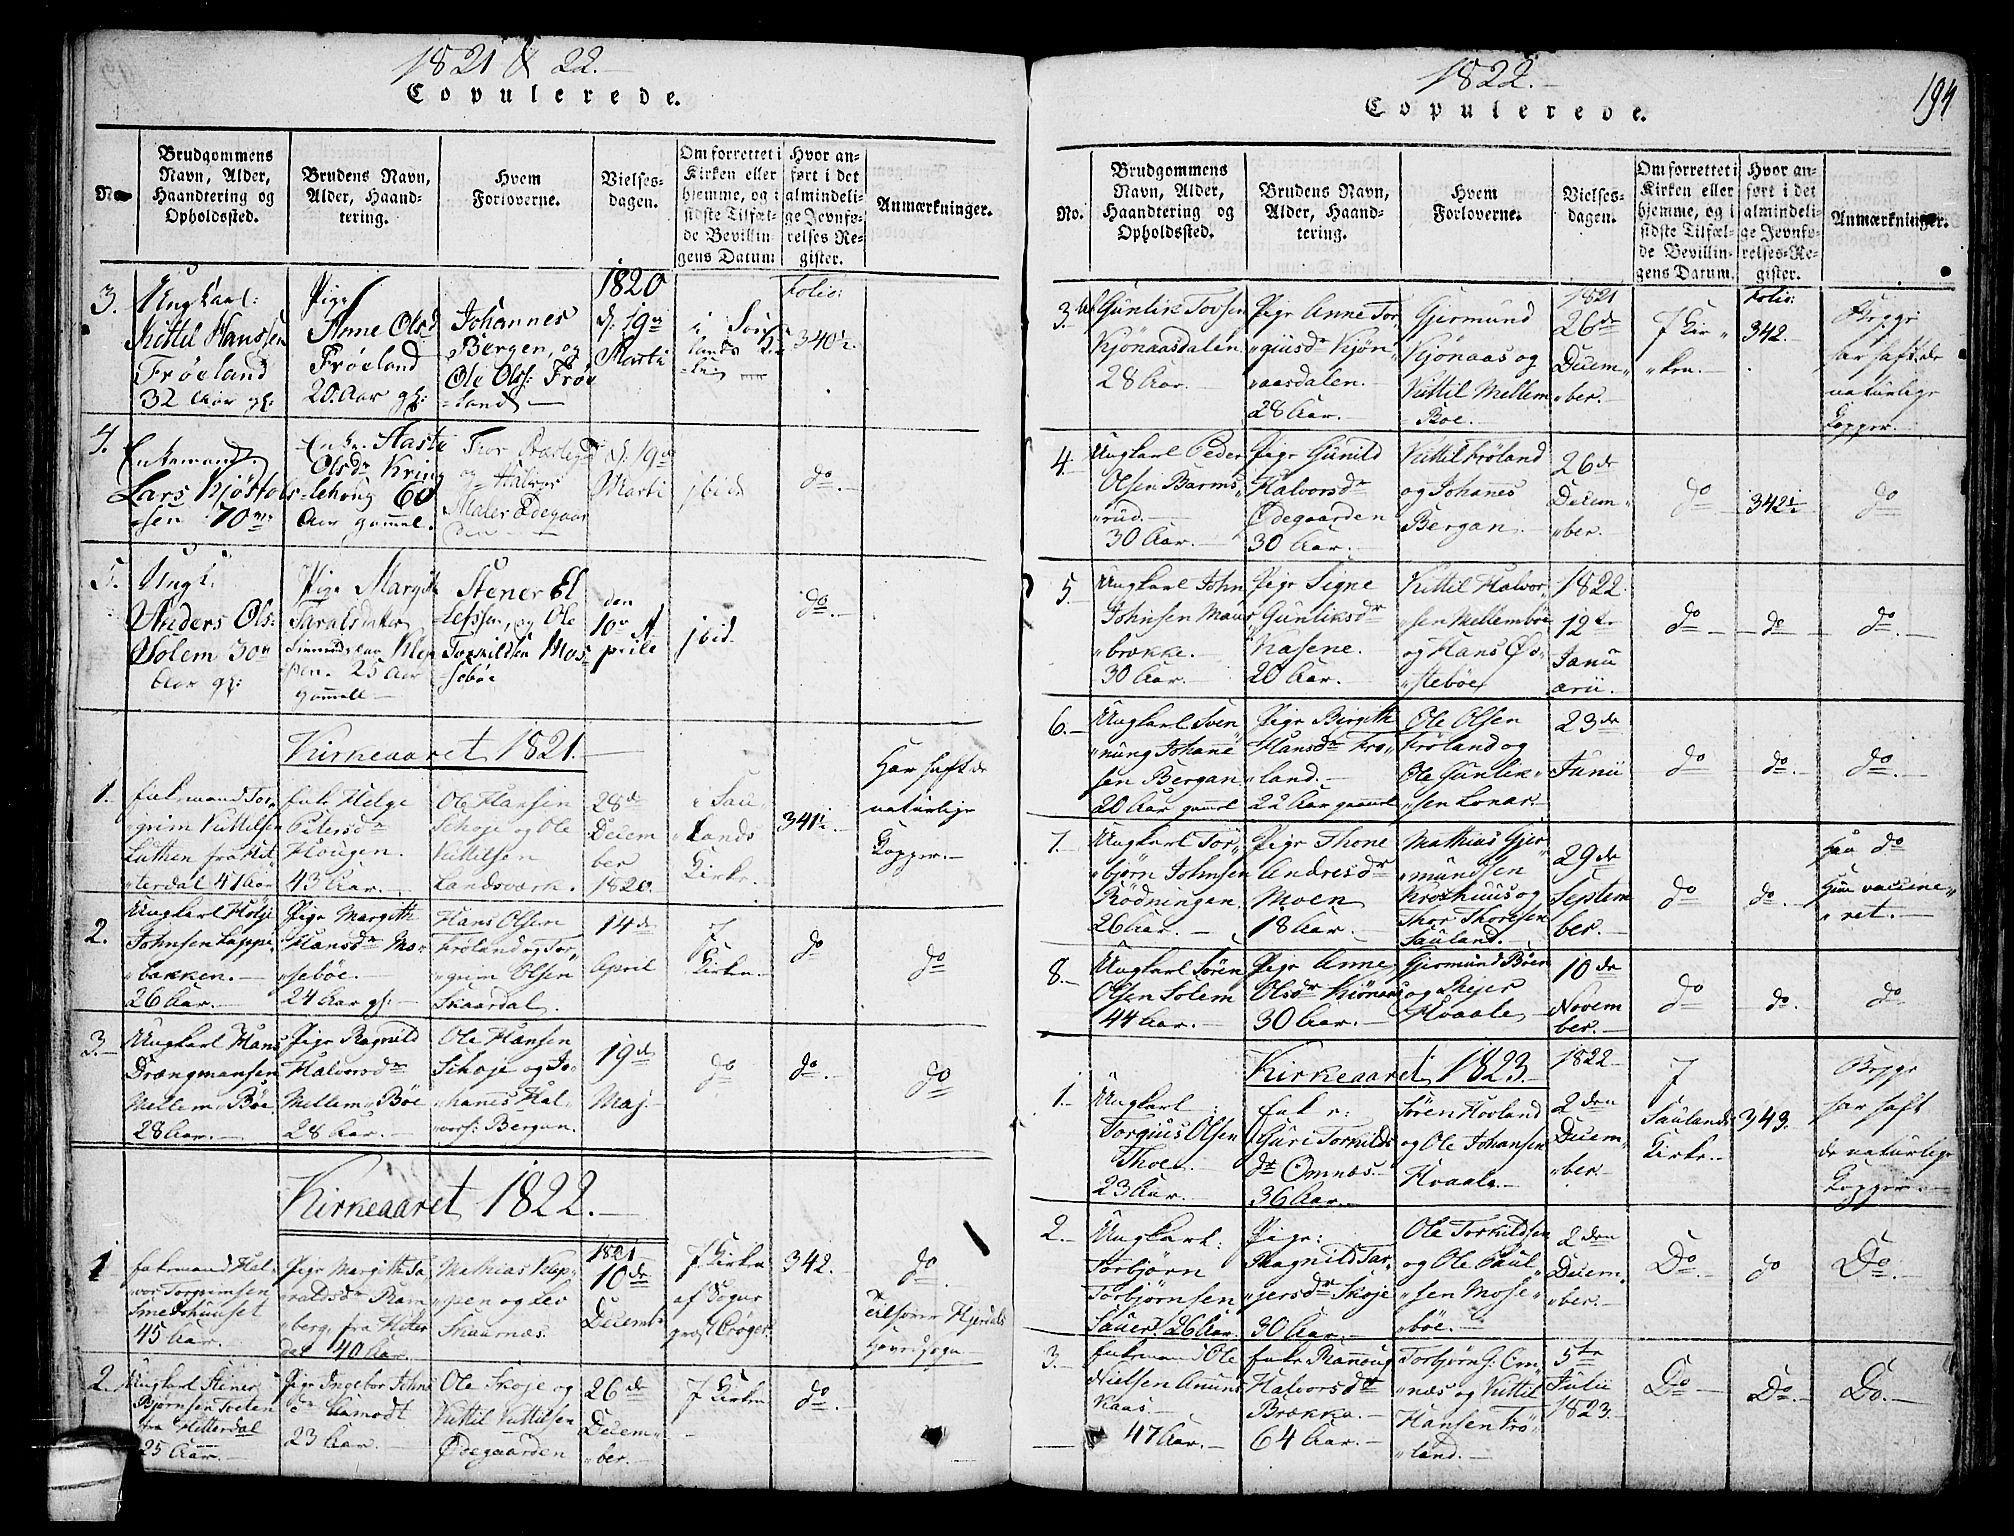 1821 & 22.
Copulerede.
No.
Brudgommens
Navn, Alder,
Haandtering og
Opholdssted.
Brudens Navn,
Alder, Haand-
tering.
Hvem
Forloverne.
Vielses-
dagen.
Om forrettet i
Kirken eller
hjemme, og i
sidste Tilfæl-
de Bevillin-
gens Datum.
Hvor an-
ført i det
almindeli-
ge Jevnfø-
relses-Re-
gister.
Anmærkninger.
3.
Ungkarl:
Kittil Hanssen
Frøeland
32 Aar gl:
Pige
Anne Olsd
Frøeland
20 Aar gl:
Johannes
Bergen, og
Ole Olss: Frøe
-land
1820
d: 19de
Marti
Folio:
340½
4.
Enkemand.
Lars Kjøstol-
-sen 70
Enke Aaste
Olsdr Kring
-lehoug 60
Aar gammel.
og Halvor
d: 19de
Marti
ibid
do.
5.
Ungk:
Anders Ols:
Solem 30
Aar gl:
Pige Margith
25 Aar
gammell
Stener El
lefssen, og Ole
Torkildsen Mos-
-sebøe
den
10de A
prile
ibid.
do.
Kirkeaaret 1821.
1.
Enkemand Tor-
grim Kittilsen
Luthen fra Hit-
terdal 47 Aar
Enke Helge
Petersdr
Hougen.
43 Aar.
Ole Hansen
Schoje og Ole
Kittilsen
Landsværk.
28de
Decem
ber
1820.
i Sau-
lands
Kirke.
341½
Har haft de
naturlige
Kopper.
2.
Ungkarl Hølje
Johnsen Loppe-
bakken.
26 Aar.
Pige Margith
Hansdr Mo-
sebøe.
24 Aar gl:
Hans Olsen
Frøland og Tor-
grim Olsen
Skaardal.
14de
April
I
Kirke.
do
do
3.
Ungkarl Hans
Drængmansen
Mellem Bøe
28 Aar.
Pige Ragnild
Halvorsdr
Mellem Bøe
28 Aar.
Ole Hansen
Schoje og Jo-
hanes Hal-
vors: Bergan.
19de
Maj.
do
do.
do
Kirkeaaret 1822.
1
Enkemand Hal-
vor Torgrimsen
Smedshuuset
45 Aar.
Pige Margith Ta
raldsdr Ram
berg, fra Hitter
dal 40 Aar.
Mathias Klep-
pen og Lev
Skaarnæs.
1821
10de
Decemb
I Kirke
af Sogne
præst Crøger.
342.
do
Hjerdals
Hovedsogn
2.
Ungkarl Stener
Bjørnsen Tveten
fra Hitterdal
25 Aar.
Pige Ingebor John
dr Aamodt
23 Aar.
Ole Skoje og
Kittil Kittilsen
Ødegaarden
26de
Decem-
ber.
I Kirke
do.
1822.
194
Copulerede.
No.
Brudgommens
Navn, Alder,
Haandtering og
Opholdssted.
Brudens Navn,
Alder, Haand-
tering.
Hvem
Forloverne.
Vielses-
dagen.
Om forrettet i
Kirken eller
hjemme, og i
sidste Tilfæl-
de Bevillin-
gens Datum.
Hvor an-
ført i det
almindeli-
ge Jevnfø-
relses-Re-
gister.
Anmærkninger.
3.
Gunlik Torsen
Kjønaasdalen
28 Aar.
Pige Anne Tor-
giusdr Kjøn-
aasdalen.
28 Aar.
Gjermund
Kjønaas og
Kittil Mellem
Boe.
1821
26de
Decem-
ber.
I Kir-
ken.
Folio:
342.
Begge
har haft de
naturlige
Kopper.
4.
Ungkarl Peder
Olsen Barms-
rud.
30 Aar.
Pige Gunild
Halvorsdr
Ødegaarden
30 Aar.
Kittil Frøland
og Johanes
Bergan.
26de
Decem-
ber.
do
342½
do
5.
Ungkarl John
Johnsen Maur-
brække.
30 Aar.
Pige Signe
Gunliksdr
Kasene.
20 Aar.
Kittil Halvor-
sen Mellembøe
og Hans Øv-
stebøe
1822.
12te
Janu
arii.
do
do
do.
6.
Ungkarl Sven
nung Johane
sen Bergan.
20 Aar gammel
Pige Birgith
Hansdr Frø-
land.
22 Aar gammel
Ole Olsen
Frøland og
Ole Gunlik-
sen Lonar.
23de
Junii
do
do.
do.
7.
Ungkarl Tor-
bjørn Johnsen
Rødningen.
26 Aar.
Pige Thone
Andresdr
Moen
18 Aar.
Mathias Gjer-
mundsen
Kroshuus og
Thor Thoresen
Sauland.
29de
Septem
ber.
do
do.
Han do
Hun vaccine-
ret.
8.
Ungkarl Søren
Olsen Solem
44 Aar.
Pige Anne
Olsdr Kjønaas
30 Aar.
Gjermund Bøen
og Skejer
Hvaale
10de
Novem
ber.
do
do.
do
Kirkeaaret 1823.
1.
Ungkarl
Torgius Olsen
Thoe.
23 Aar.
Enke:
Guri Torkilds
dr Omnæs.
36 Aar.
Søren Hovland
og Ole Johansen
Hvaale.
1822.
2den
Decem-
ber.
I
Saulands
Kirke.
343.
Begge
har haft
de naturlige
Kopper.
2.
Ungkarl:
Torbjørn
Torbjørnsen
Sauer. 26 Aar.
Pige:
Ragnild Tar-
jersdr Skoje
30 Aar.
Ole Torkildsen
og Ole Paul-
sen Mose-
bøe.
2den
Decem-
ber.
Do.
do
Do.
3.
Enkemand Ole
Nielsen Amuns
Kaas
47 Aar.
Enke Rannoug
Halvorsdr
Brække.
64 Aar.
Torbjørn G: Om-
næs og Kittil
Hansen Frø-
land.
5te
Julii
1823.
Do
Do.
Do.